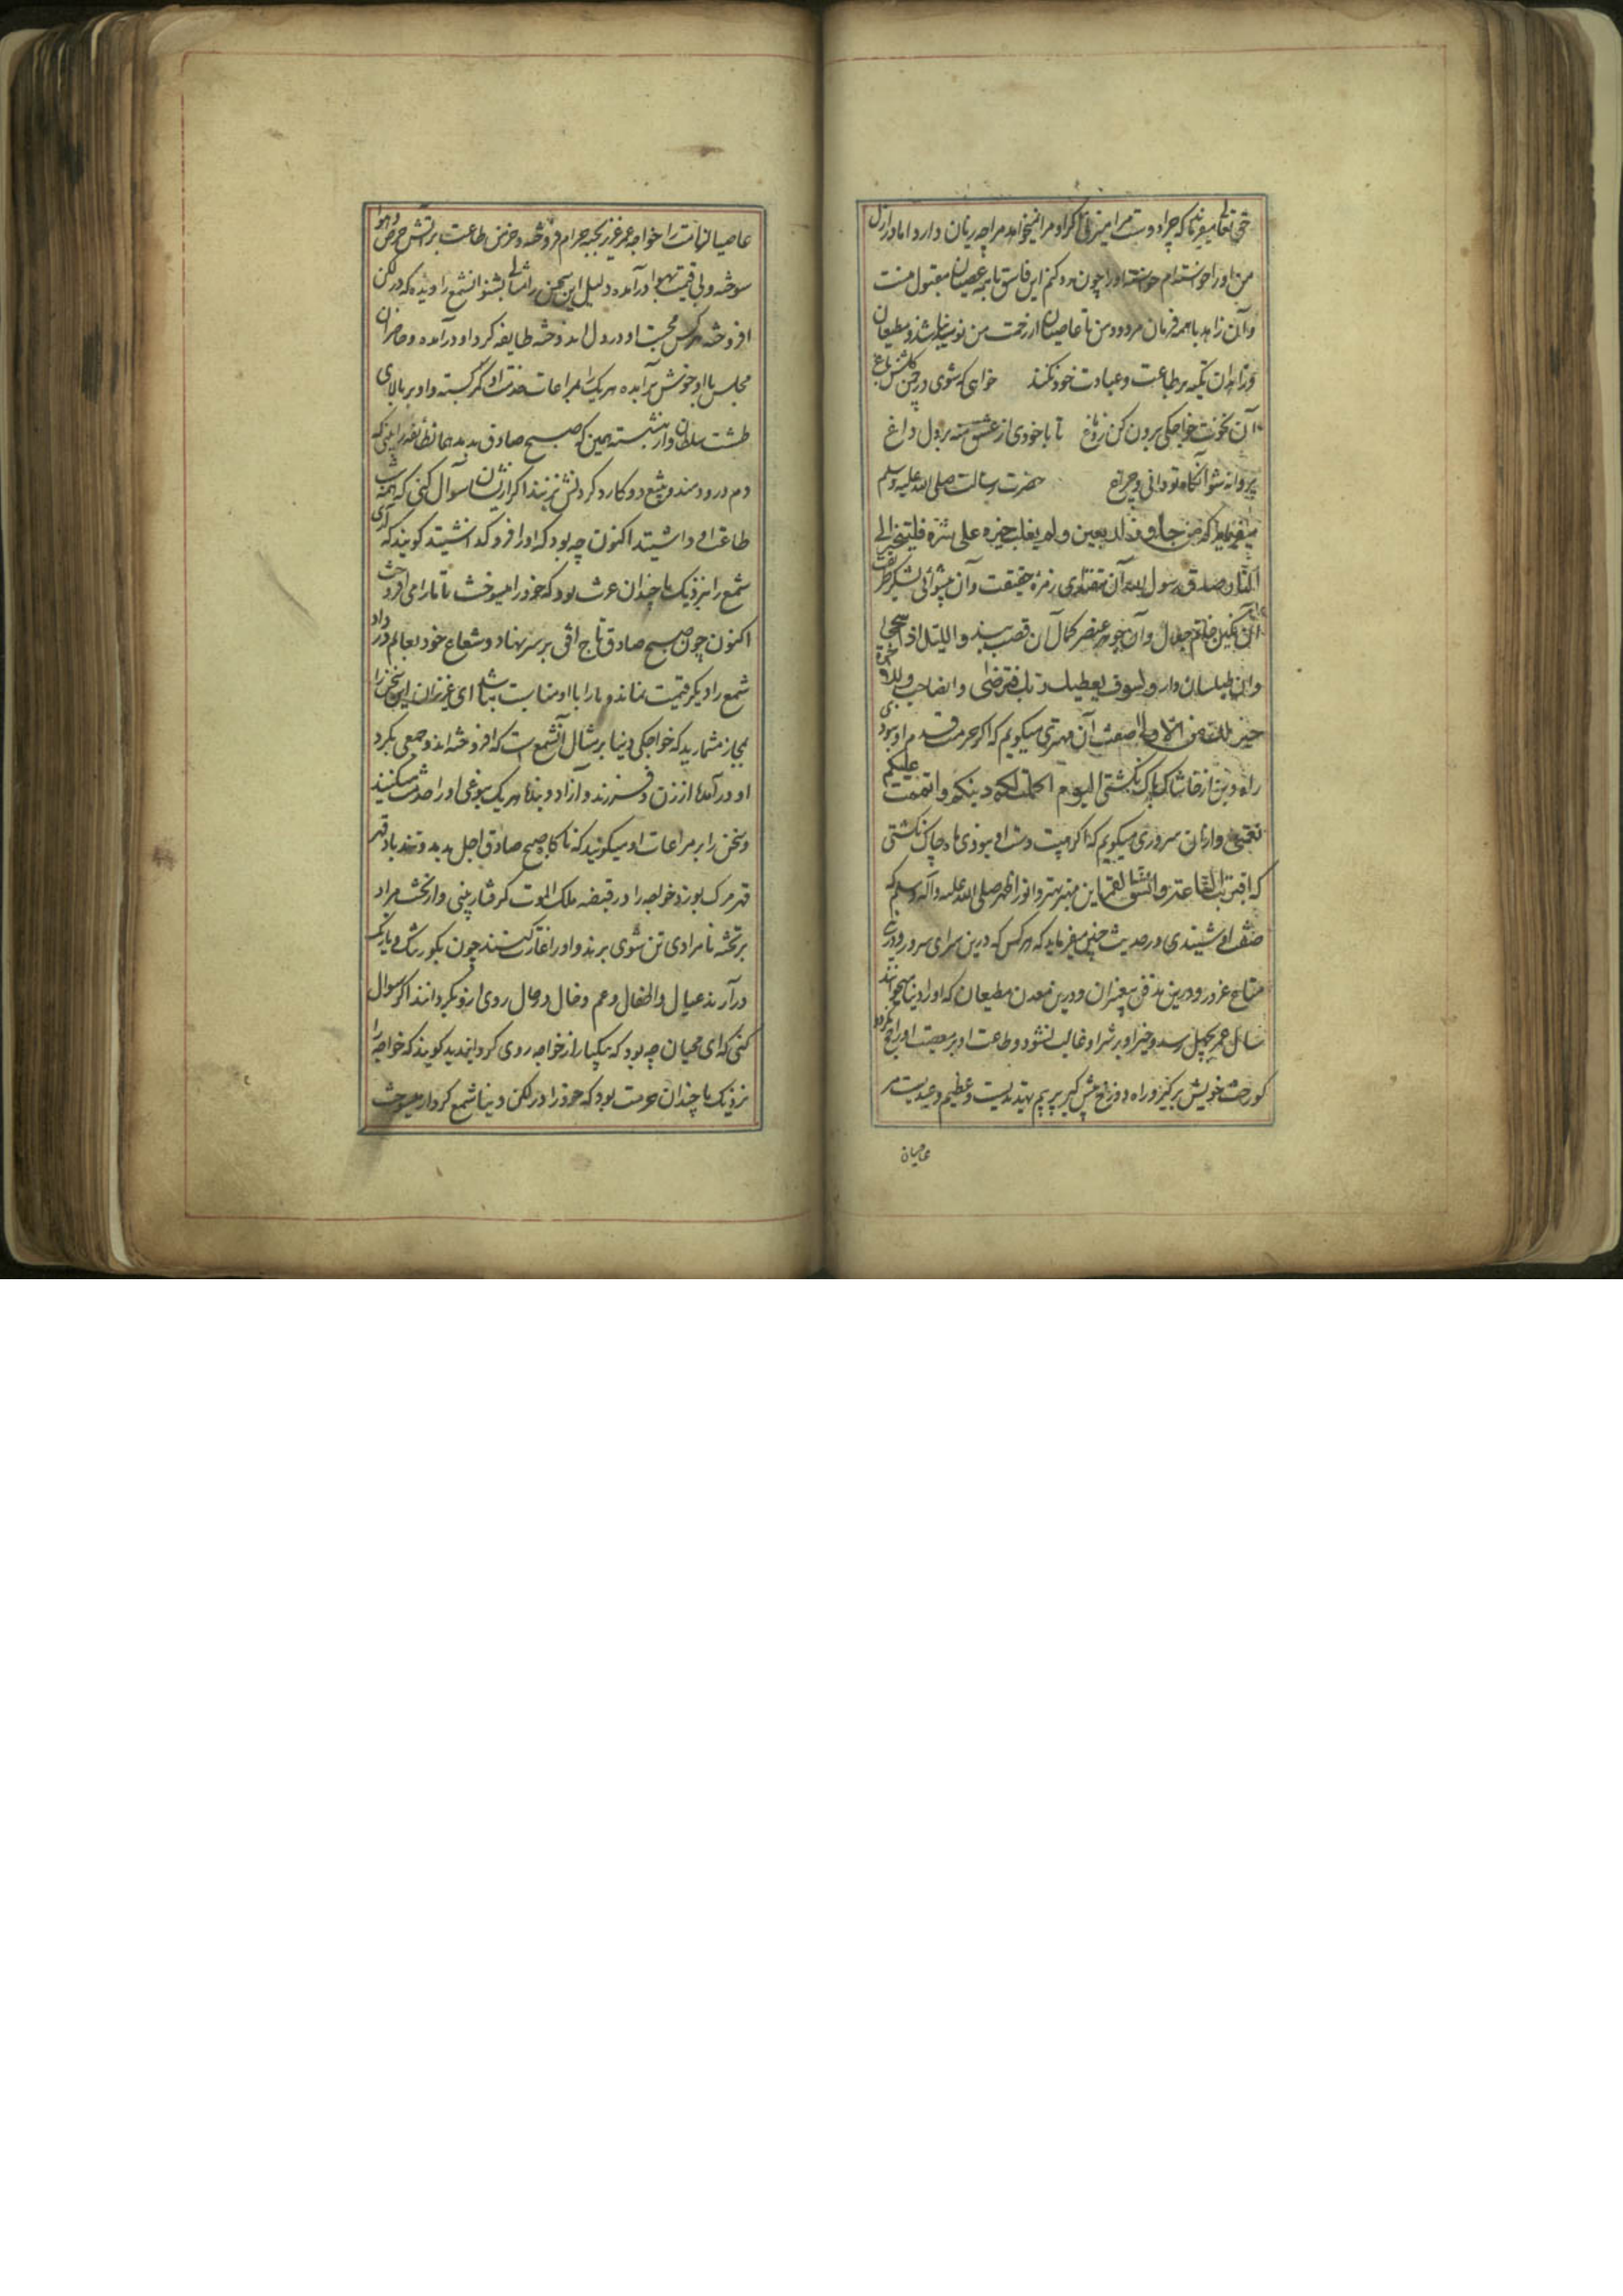 حق تعالی میفرماید که چرا دوست مرا میزنی اگر او مرا نمیخواهد مرا چه زیان دارد اما در ازل
من او را خواسته‌ام خواسته او را چون رد کنم این فاسق با همه عصیان مقبول منست
و آن زاهد با همه فرمان مردود من تا عاصیان از رحمت من نومید نباشند و مطیعان
و زاهدان تکیه بر طاعت و عبادت خود نکنند خواهی که شوی در چمن گلشن باغ
آن نخوت خواجگی برون کن ز دماغ تا با خودی از عشق منه بر دل داغ
پروانه شو آنگاه تو دانی و چراغ حضرت رسالت صلی الله علیه وسلم
میفرماید که من جاوز الاربعین ولم یغلب خیره علی شره فلیتجهز الی
النار صدق رسول الله آن مقتدای زمره حقیقت و آن پیشوای لشکر طریقت
آن نگین خاتم جلال و آن جوهر عنصر کمال آن قصب بند واللیل اذا سجی
و آن طیلسان دار ولسوف یعطیک ربک فترضی وانصاحب وللاخرة
خیر لک من الاولی صفت آن مهتری میگویم که اگر حرمت قدم او نبودی
راه دین از خاشاک پاک نگشتی الیوم اکملت لکم دینکم واتممت علیکم
نعمتی و از آن سروری میگویم که اگر هیبت دست او نبودی ماه چاک نگشتی
که اقتربت الساعة وانشق القمر این مهتر و انور اظهر صلی الله علیه وآله وسلم که
صفت او شنیدی در حدیث چنین میفرماید که هر کس که درین سرای سرور و درین
متاع غرور و درین مدفن پیغمبران و درین معدن مطیعان که او را دنیا میخوانند
سال عمر بچهل رسد و خیر او بر شر او غالب نشود و طاعت او بر معصیت او راجح نگردد
گو رخت خویش برگیر و راه دوزخ در پیش گیر تهدیدیست عظیم وعیدیست مر
عاصیان
عاصیان امت را خواجه عمر عزیز بحبه حرام فروخته و خرمن طاعت بر آتش حرص و هوا
سوخته و بی قیمت بهوا درآمده دلیل این سخن را مثالی بشنو آن شمع را دیده که در لگن
افروخته هر کس محبت او در دل اندوخته طایفه گرد او درآمده و حاضران
مجلس با او خوش برآمده هر یک را بمراعات خدمت او کمر بسته و او بر بالای
طشت سلطان وار نشسته همین که صبح صادق بدمد همان طایفه را بینی که
دم در دمند و بتیغ و کارد گردنش بزنند اگر از ایشان سوآل کنی که همه شب
طاعت او داشتید اکنون چه بود که او را فرو گذاشتید گویند که آری
شمع را نزدیک ما چندان عزت بود که خود را میسوخت تا ما را می افروخت
اکنون چون صبح صادق تاج افق بر سر نهاد و شعاع خود بعالم در داد
شمع را دیگر قیمت نماند و ما را با او مناسبت نباشد ای عزیزان این سخن را
مجاز مشمارید که خواجگی دنیا بر مثال آن شمع است که افروخته‌اند و جمعی بگرد
او درآمده از زن و فرزند و آزاد و بنده هر یک بنوعی او را خدمت میکنند
و سخن را بر مراعات او میگویند که ناگاه صبح صادق اجل بدمد و تند باد قهر
قهر مرگ بوزد خواجه را در قبضه ملک الموت گرفتار بینی و از تخت مراد
بر تخته نامرادی تن شوی برند و او را غارت کنند چون بگور تنگ و تاریک
درآرند عیال و اطفال و عم و خال و مال روی ازو بگردانند اگر سوال
کنی که ای محبان چه بود که بیکبار از خواجه روی گردانیدید گویند که خواجه را
نزدیک ما چندان حرمت بود که خود را در لگن دنیا شمع کردار میسوخت